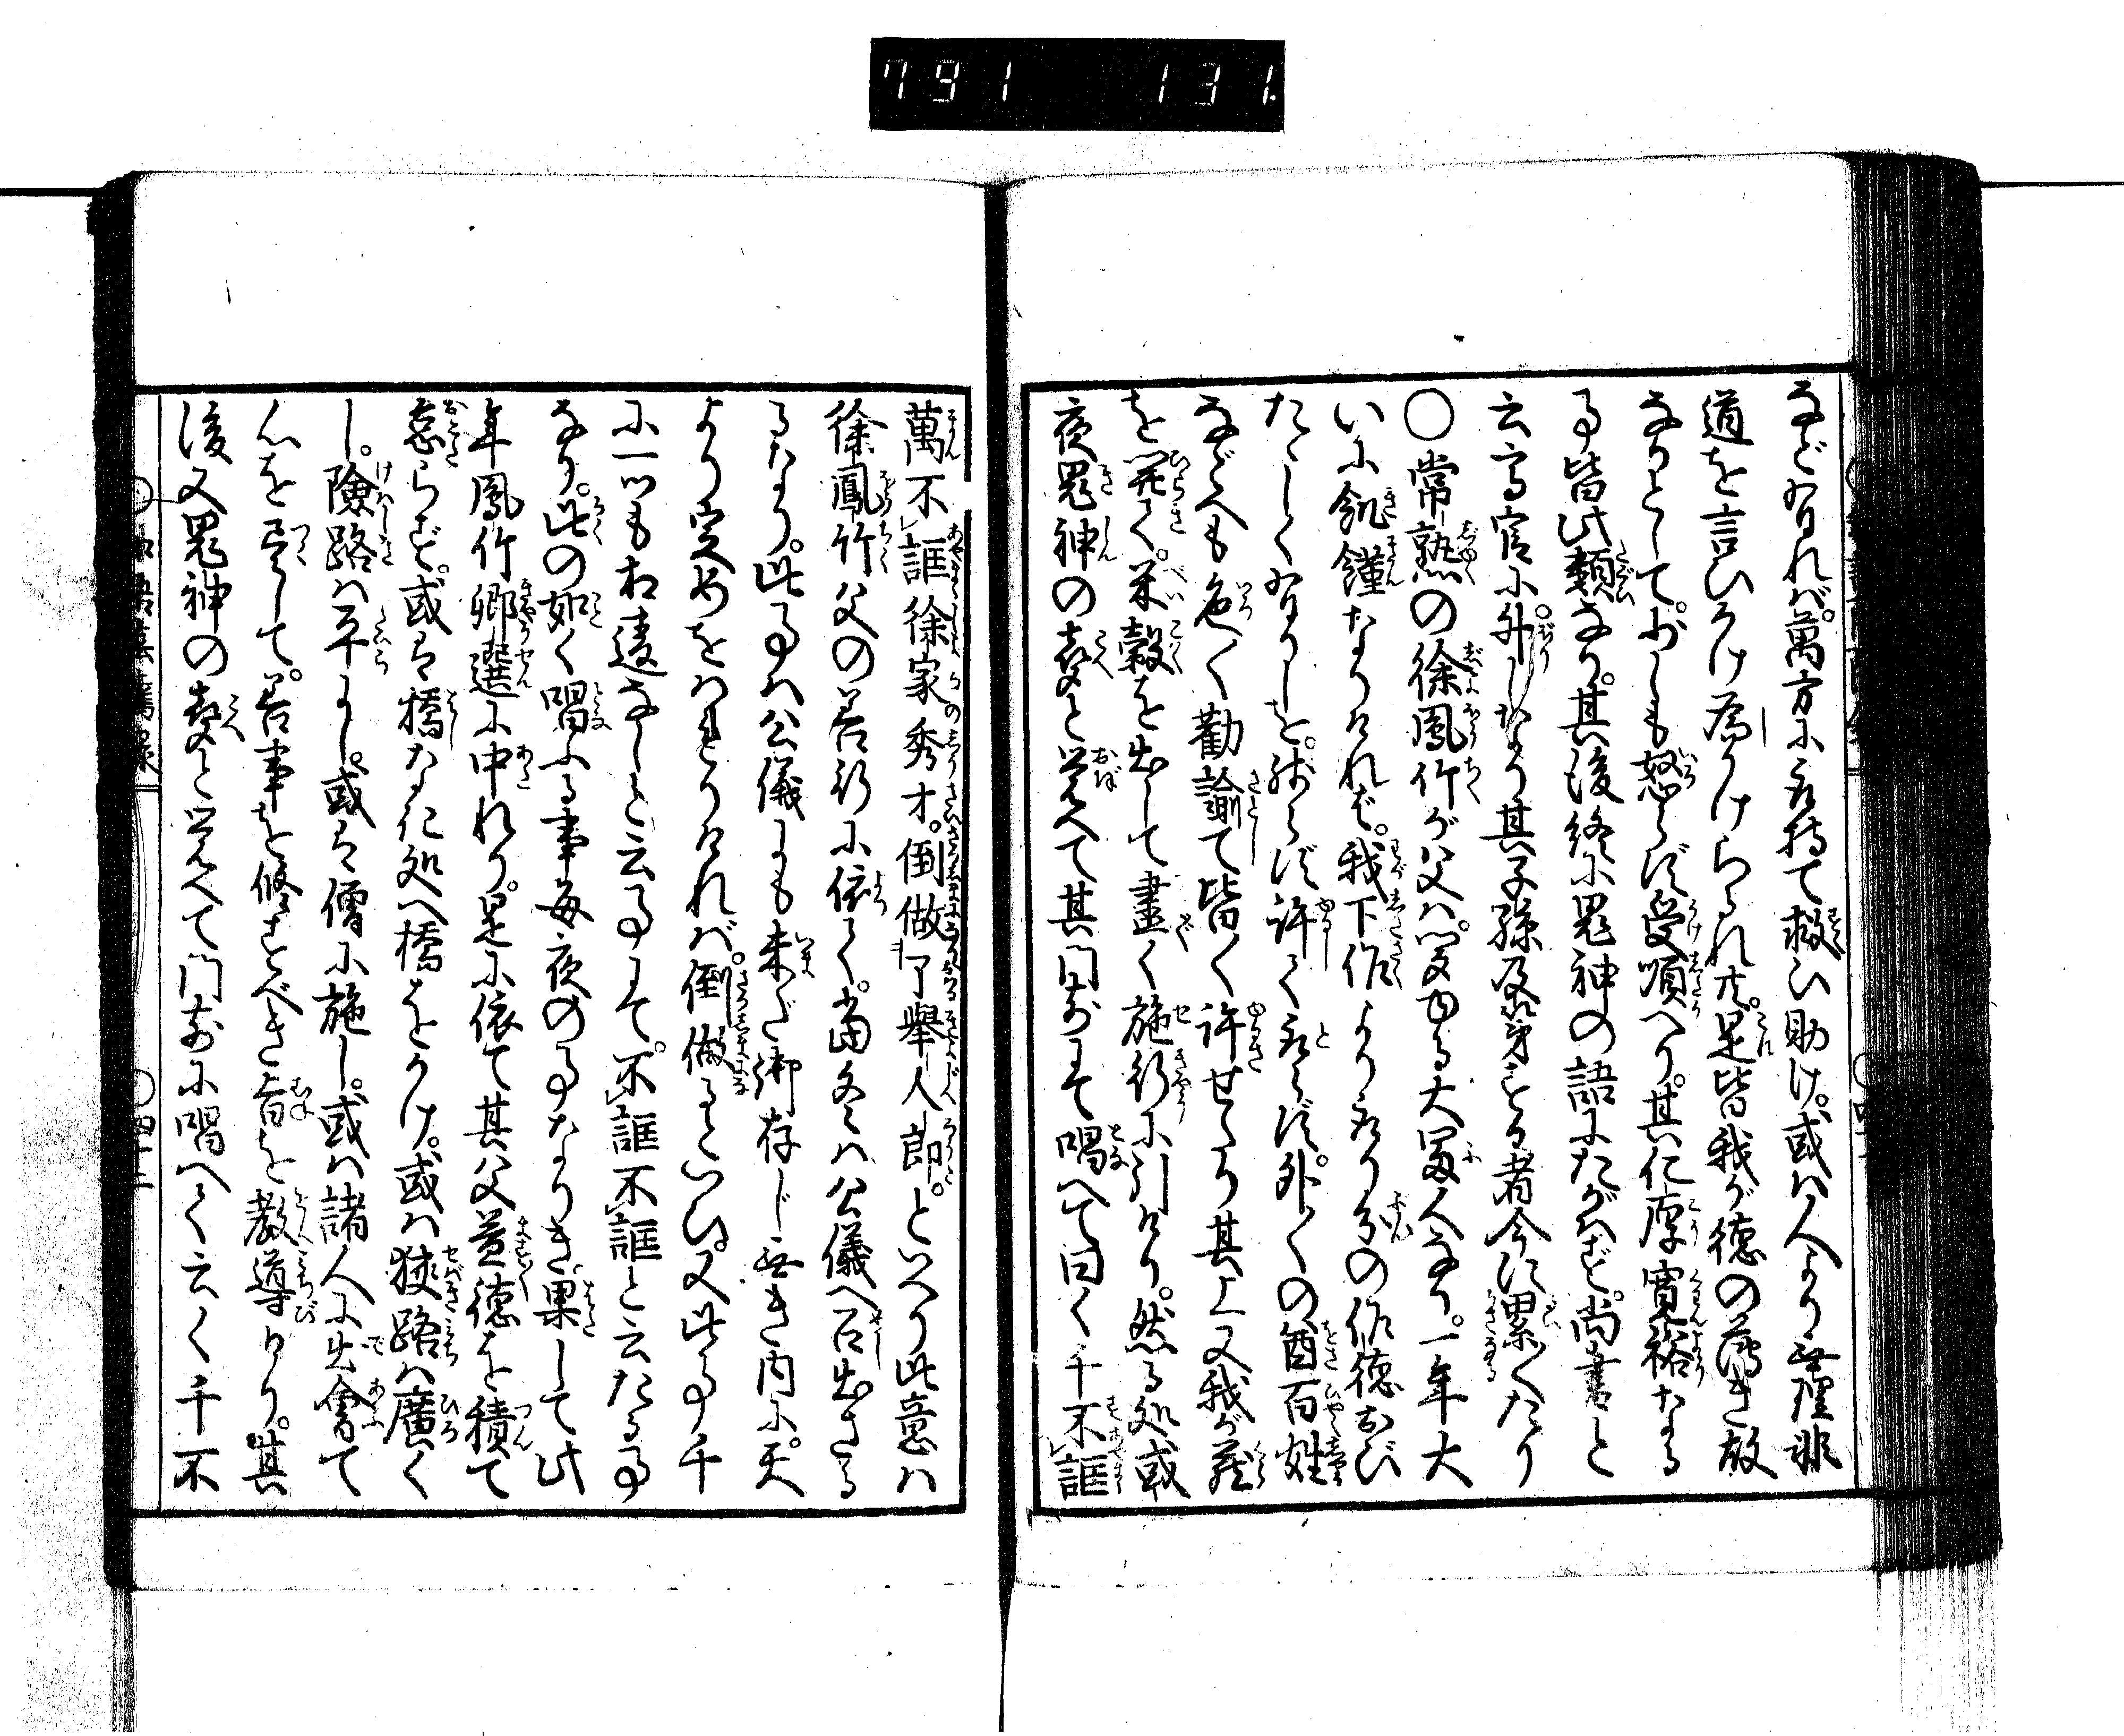 791 131.
などありれば。萬方に取持て救ひ助け。或は人より無理非
道を言ひかけ為かけらるれ共。是皆我が徳の薄き故
なりとして。少しも怒らず受順へり。其仁厚寛裕なる
事皆此類なり。其後終に鬼神の語にたがはず。尚書と
云高官に外しなり其子孫及第する者今に累〱たり
○常熟の徐鳳竹が父は。富有る大冨人なり。一年大
いに飢饉なりければ。我下作より取り分の作徳および
たしくありしを。残らず許して取らず。外〱の酋百姓
などへも色〱勧諭て皆〱許せたり其上又我が藏
を開て。米穀を出して盡く施行に引けり。然る処或
夜鬼神の聲と覚へて其門前にて唱へて曰く千不誆
萬不誆徐家秀才。倒做了舉人郎。といへり此意は
徐鳳竹父の善行に依て。當冬は公儀へ召出さる
るなり。此事は公儀にも未だ御存じ無き内に。天
より定めをはりければ。倒做るといふ。又此事千
に一つも相違なしと云事にて。不誆不誆と云たる事
なり。此の如く唱ふる事毎夜の事なりき。果して此
年鳳竹郷選に中れり。是に依て其父益徳を積て
怠らず。或は橋なき処へ橋をかけ。或は狹路は廣く
し。險路は平にし。或は僧に施し。或は諸人に出會て
心を尽して。善事を修すべき旨を教導けり。其
後又鬼神の聲と覚へて門前に唱へて云く千不